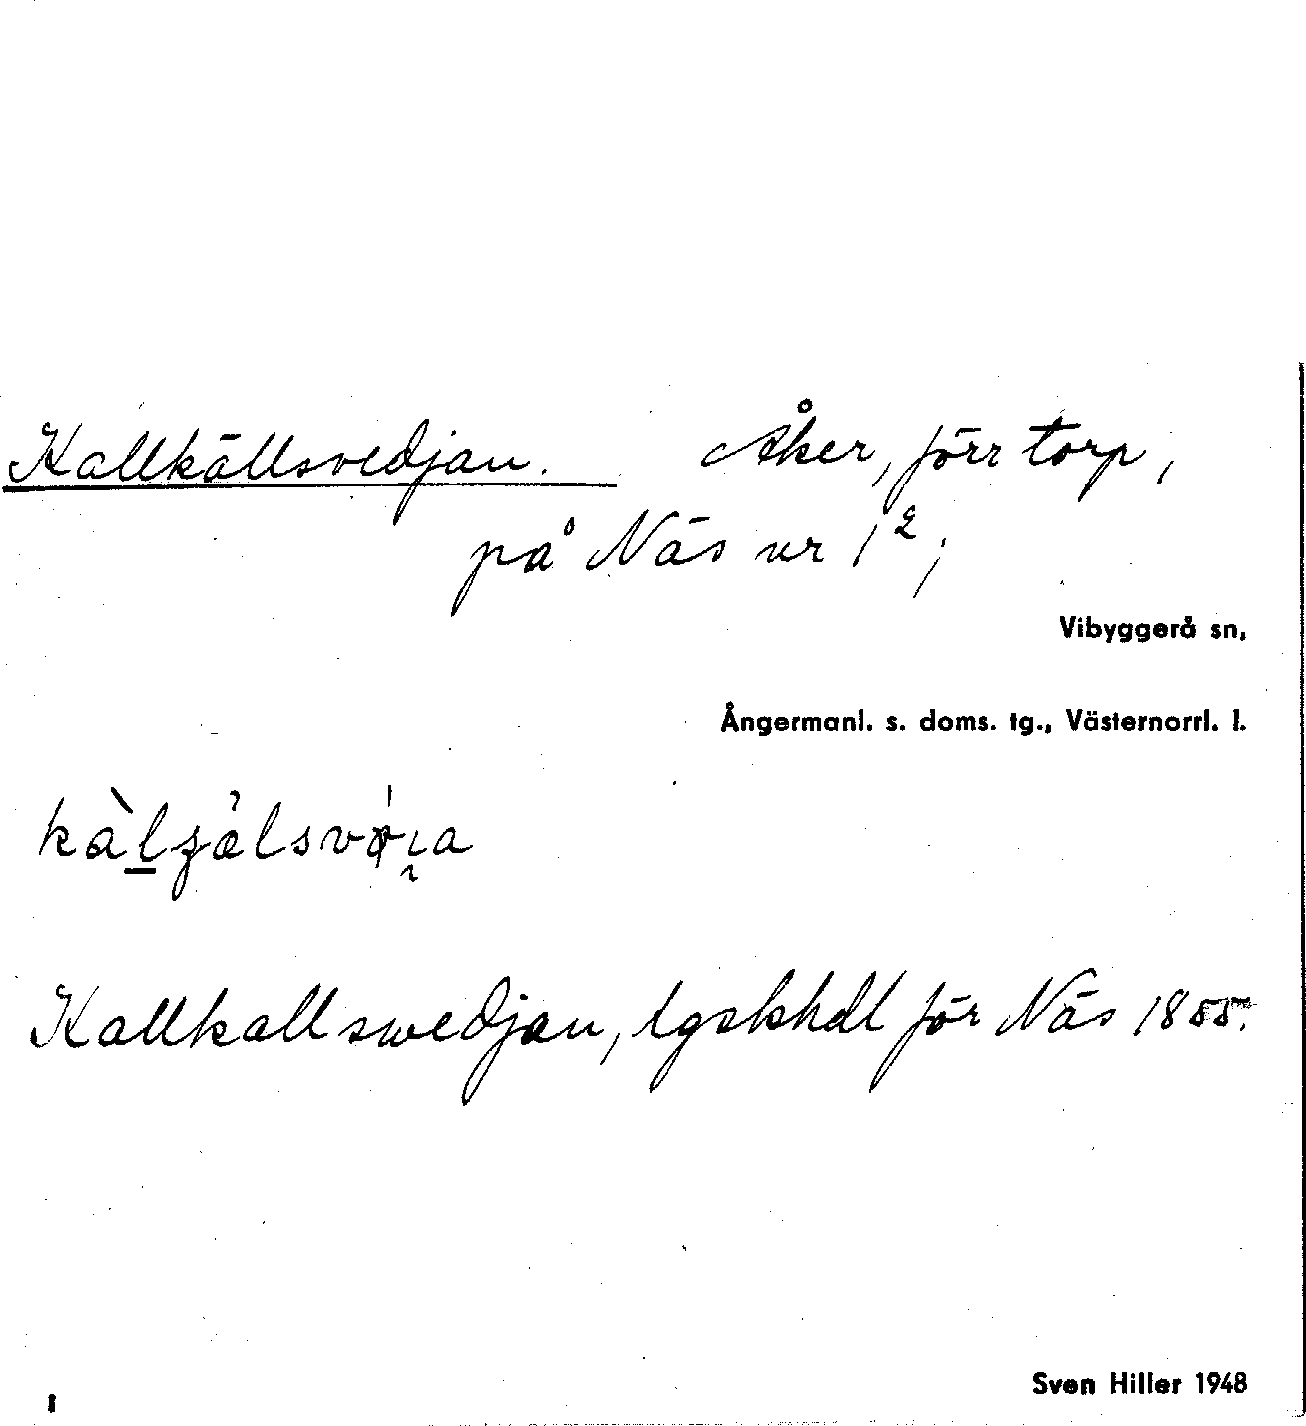 Kallkällsvedjan. Åker, förr torp,
på Näs nr 1²;
Vibyggerå sn,
Ångermanl. s. doms. tg., Västernorrl. l.
Kallkallswedjan, lgskhdl för Näs 1855.
Sven Hiller 1948